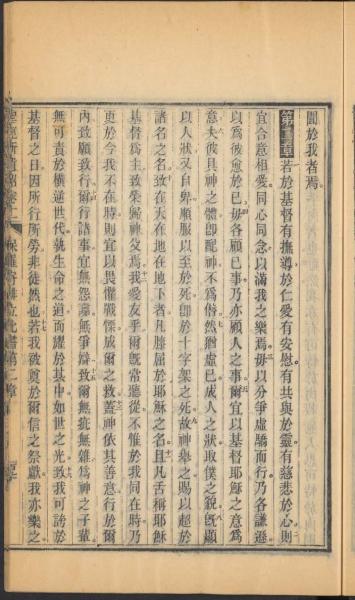 聞於我者焉
第二章若於基督有撫導於仁愛有安慰有共與於靈有慈悲於心則
宜合意相愛同心同念以滿我之樂焉毋以分爭虛驕而行乃各謙遜
以為彼愈於已毋各顧已事乃亦顧人之事爾宜以基督耶穌之意為
意夫彼具神之體卽配神不為僭然猶虛已成人之狀取僕之貌旣顯
以人狀又自卑順服以至於死卽於十字架之死故神舉之賜以超於
諸名之名致在天在地在地下者凡膝屈於耶穌之名且凡舌稱耶穌
基督為主致榮歸神父焉我愛友乎爾旣常聽從不惟於我同在時乃
更於今我不在時則宜以畏懼戰慄成爾之救蓋神依其善意行於爾
內致願致行爾行諸事宜無怨讟無爭辯致爾無疵無雜為神之子輩
無可責於橫逆世代執生命之道而耀於其中如世之光致我可誇於
基督之日因所行所勞非徒然也若我被奠於爾信之祭獻我亦樂之